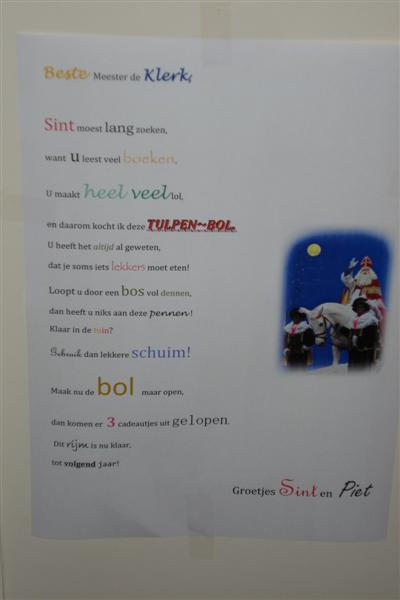 Beste Meester de Klerk,
Sint moest lang zoeken,
want u leest veel boeken.
U maakt heel veel lol,
en daarom kocht ik deze TULPEN~BOL.
U heeft het altijd al geweten,
dat je soms iets lekkers moet eten!
Loopt u door een bos vol dennen,
dan heeft u niks aan deze pennen!
Klaar in de tuin?
Gebruik dan lekkere schuim!
Maak nu de bol maar open,
dan komen er 3 cadeautjes uit gelopen.
Dit rijm is nu klaar,
tot volgend jaar!
Groetjes Sint en Piet